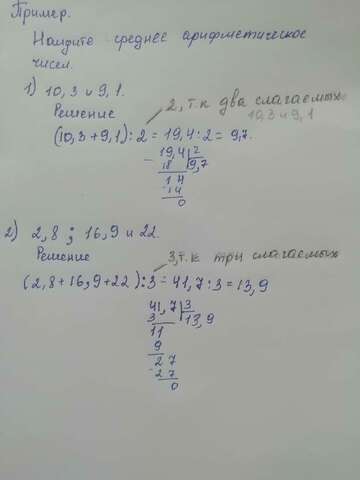 Пример.
Найдите среднее арифметическое
чисел.
1) 10,3 и 9,1.
2, т.к два слагаемых
10,3 и 9,1
Решение
(10,3+9,1):2=19,4:2=9,7.
19,4 2
18 9,7
14
14
0
2) 2,8; 16,9 и 22.
Решение
3, т.к три слагаемых
(2,8+16,9+22):3=41,7:3=13,9
41,7 3
3 13,9
11
9
27
27
0